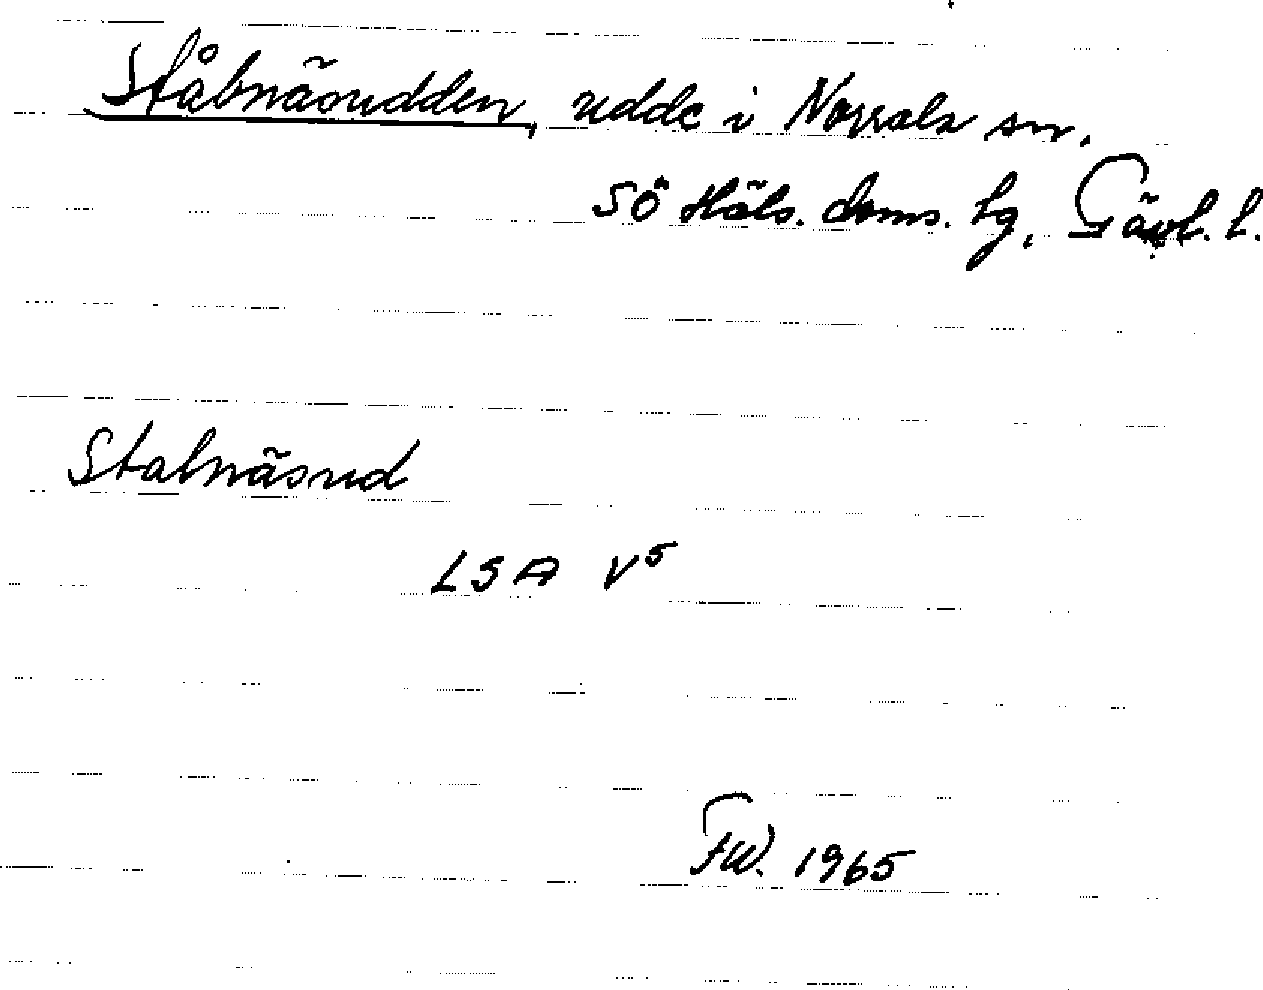 Stålnäsudden, udde i Norrala sn.
SÖ Häls. doms. lg, Gävl. l.
Stalnäsud
LSA V⁵
FW. 1965